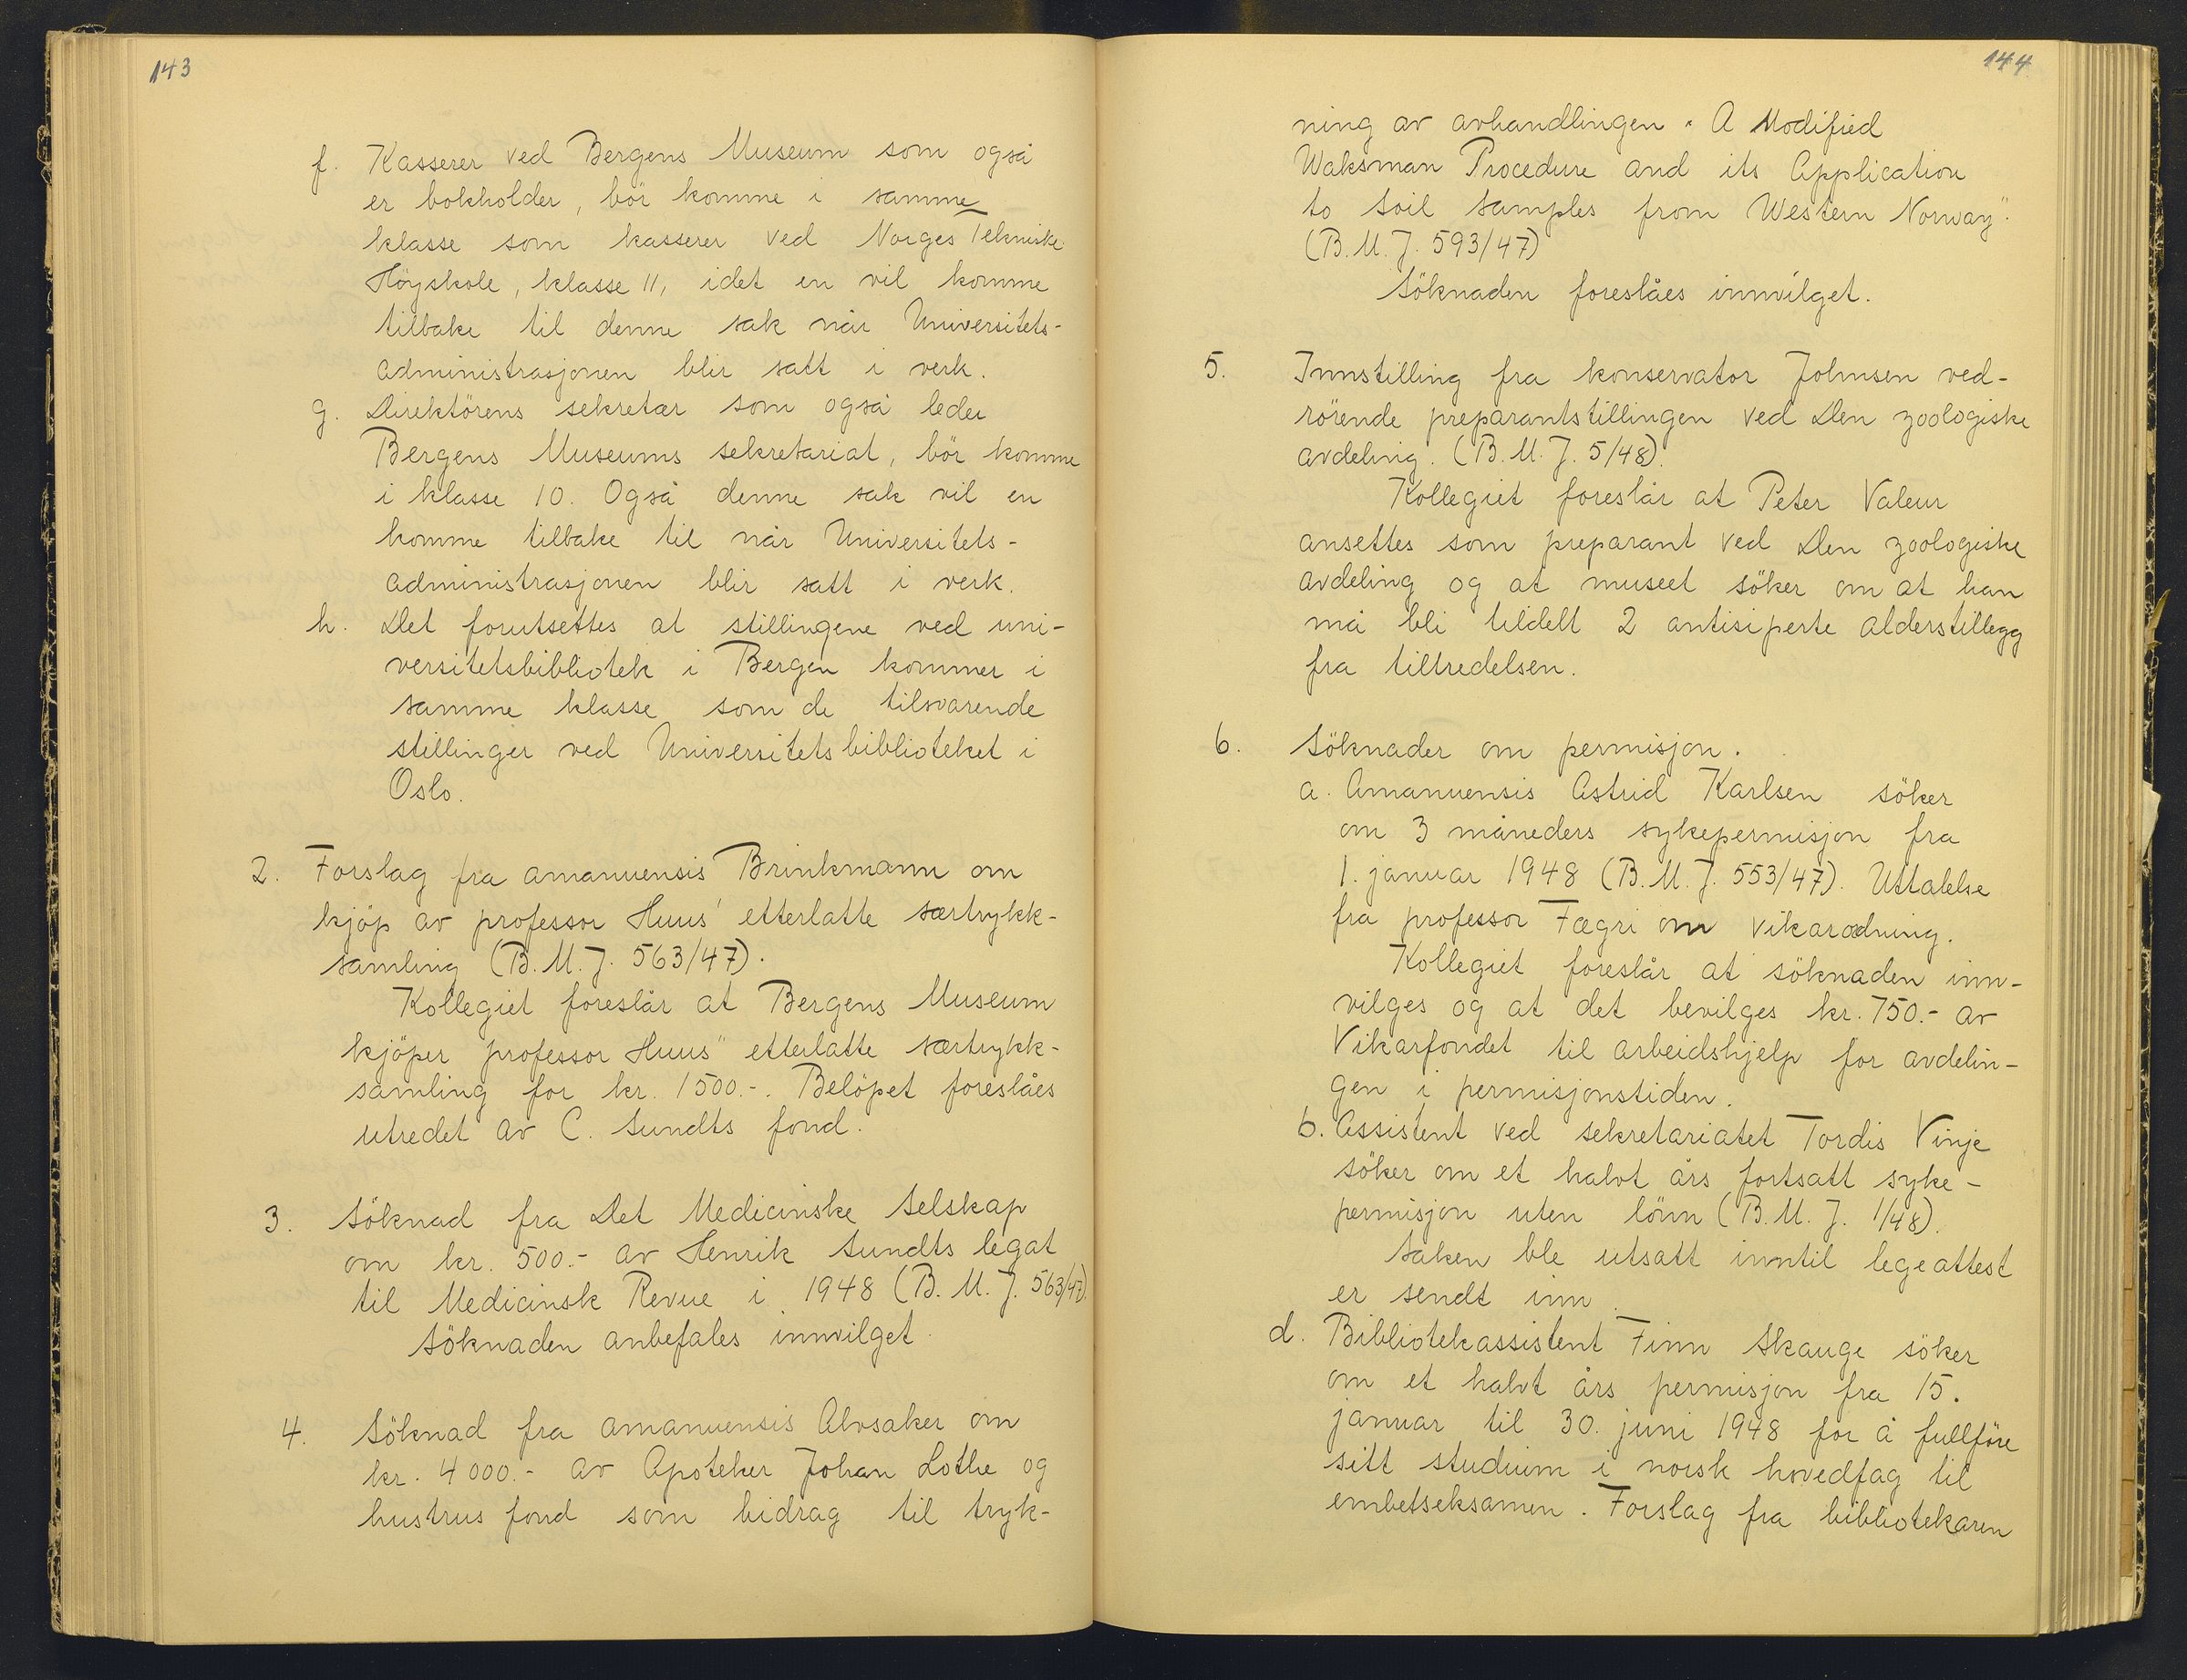 143
f. Kasserer ved Bergens Museum som også
er bokholder, bör komme i samme
klasse som kasserer ved Norges Tekniske
Höyskole, klasse 11, idet en vil komme
tilbake til denne sak når Universitets-
administrasjonen blir satt i verk.
g. Direktörens sekretær som også leder
Bergens Museums sekretariat, bör komme
i klasse 10. Også denne sak vil en
komme tilbake til når Universitets-
administrasjonen blir satt i verk.
h. Det forutsettes at stillingene ved uni-
versitetsbibliotek i Bergen kommer i
samme klasse som de tilsvarende
stillinger ved Universitetsbiblioteket i
Oslo.
2. Forslag fra amanuensis Brinkmann om
kjöp av professor Huus' etterlatte særtrykk-
samling (B.M.J. 563/47).
Kollegiet foreslår at Bergens Museum
kjöper professor Huus" etterlatte særtrykk-
samling for kr. 1500.-. Belöpet foreslåes
utredet av C. Sundts fond.
3. Söknad fra Det Medicinske Selskap
om kr. 500.- av Henrik Sundts legat
til Medicinsk Revue i 1948 (B.M.J. 563/47).
Söknaden anbefales innvilget.
4. Söknad fra amanuensis Alvsaker om
kr. 4000.- av Apoteker Johan Lothe og
hustrus fond som bidrag til tryk-
144
ning av avhandlingen " A Modified
Waksman Procedure and its Application
to Soil Samples from Western Norway".
(B.M.J. 593/47)
Söknaden foreslåes innvilget.
5. Innstilling fra konservator Johnsen ved-
rörende preparantstillingen ved Den zoologiske
avdeling. (B.M.J. 5/48).
Kollegiet foreslår at Peter Valeur
ansettes som preparant ved Den zoologiske
avdeling og at museet söker om at han
må bli tildelt 2 antisiperte alderstillegg
fra tiltredelsen.
6. Söknader om permisjon.
a. Amanuensis Astrid Karlsen söker
om 3 måneders sykepermisjon fra
1. januar 1948 (B.M.J. 553/47). Uttalelse
fra professor Fægri om vikarordning.
Kollegiet foreslår at söknaden inn-
vilges og at det bevilges kr. 750.- av
Vikarfondet til arbeidshjelp for avdelin-
gen i permisjonstiden.
b. Assistent ved sekretariatet Tordis Vinje
söker om et halvt års fortsatt syke-
permisjon uten lönn (B.M.J. 1/48).
Saken ble utsatt inntil legeattest
er sendt inn.
d. Bibliotekassistent Finn Skauge söker
om et halvt års permisjon fra 15.
januar til 30. juni 1948 for å fullföre
sitt studium i norsk hovedfag til
embetseksamen. Forslag fra bibliotekaren